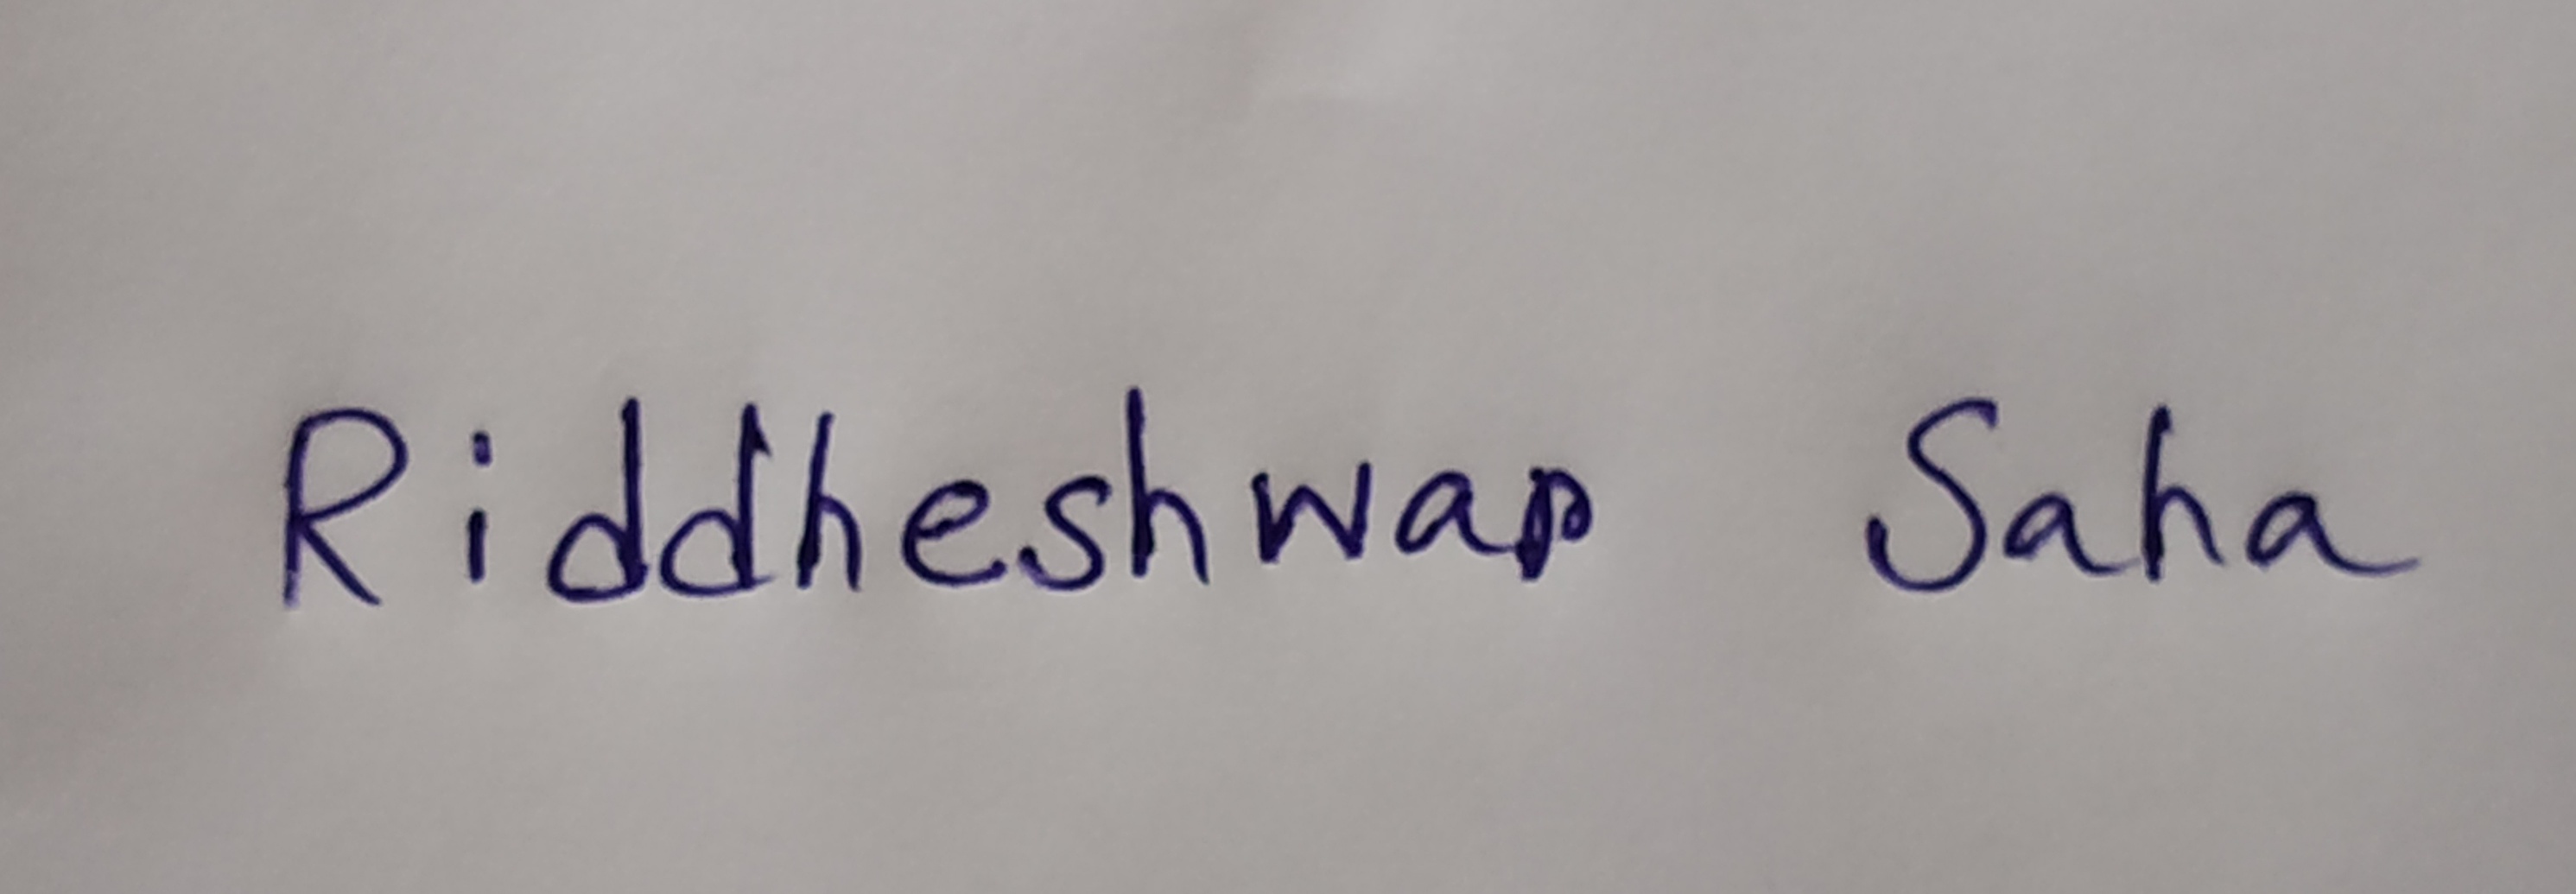 Riddheshwar Saha